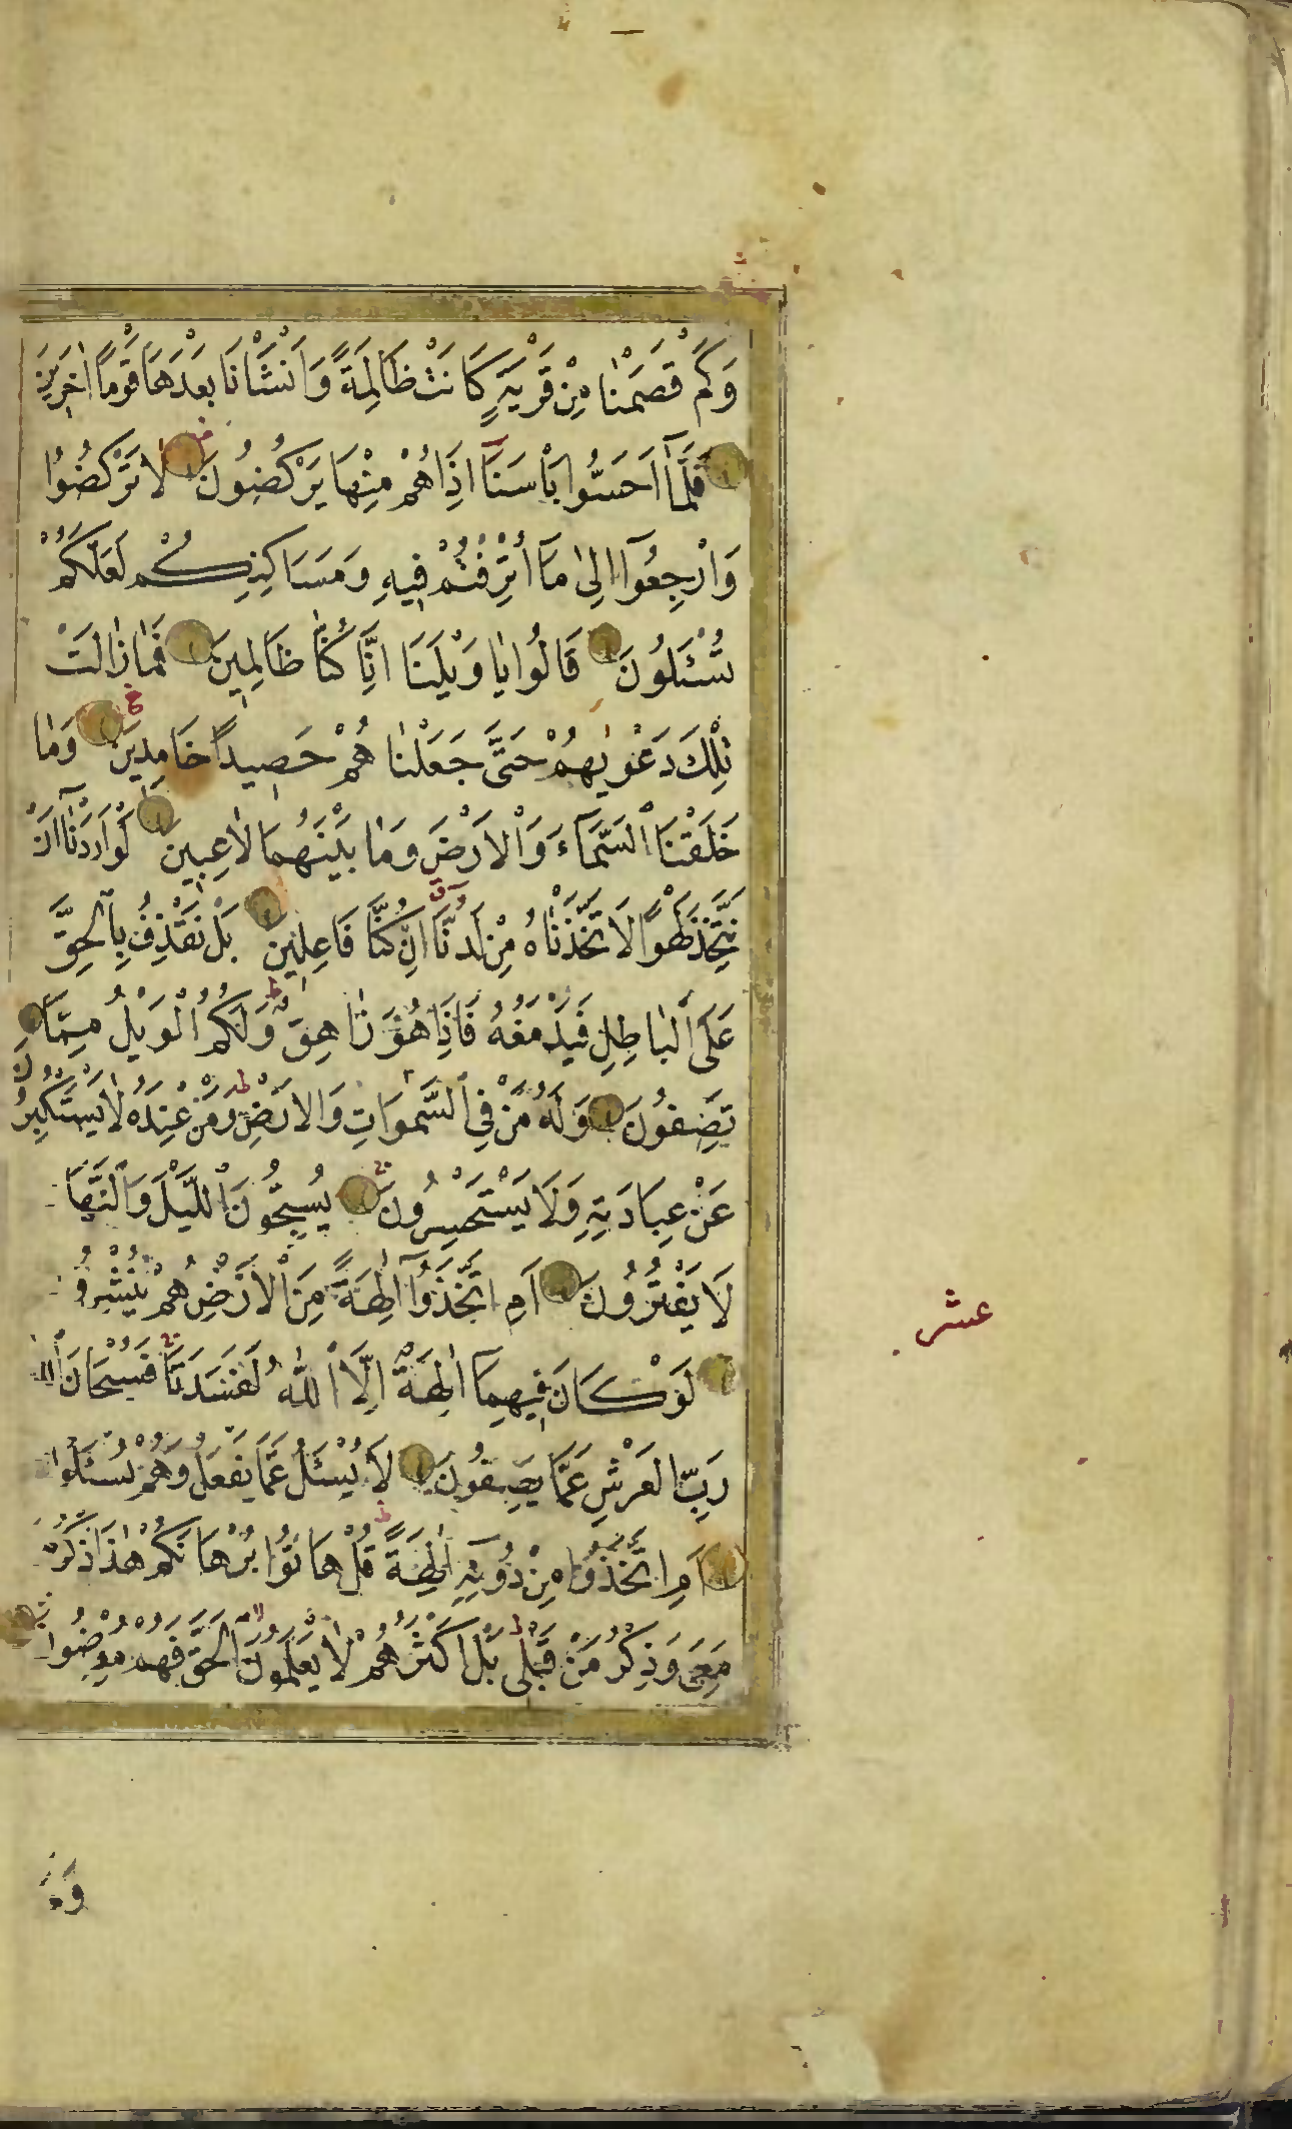 وَكَمْ قَصَمْنٰا مِنْ قَرْيَةٍ كَانَتْ ظَالِمَةً وَاَنْشَأْنَا بَعْدَهَا قَوْمًا اٰخَرِينَ
فَلَمَّآ اَحَسُّوا بَأْسَنَآ اِذَا هُمْ مِنْهَا يَرْكُضُونَ لٰا تَرْكُضُوا
وَارْجِعُوٓا اِلىٰ مَآ اُتْرِفْتُمْ فِيهِ وَمَسَاكِنِكُمْ لَعَلَّكُمْ
تُسْـَٔلُونَ قَالُوا يٰا وَيْلَنَا اِنَّا كُنَّا ظَالِمِينَ فَمٰا زٰالَتْ
تِلْكَ دَعْوٰيهُمْ حَتّىٰ جَعَلْنٰاهُمْ حَصِيدًا خَامِدِينَ وَمٰا
خَلَقْنَا السَّمَآءَ وَالْاَرْضَ وَمٰا بَيْنَهُمَا لٰاعِبِينَ لَوْ اَرَدْنٰٓا اَنْ
نَتَّخِذَ لَهْوًا لَاتَّخَذْنٰاهُ مِنْ لَدُنَّآ اِنْ كُنَّا فَاعِلِينَ بَلْ نَقْذِفُ بِالْحَقِّ
عَلَى الْبٰاطِلِ فَيَدْمَغُهُ فَاِذٰا هُوَ زٰاهِقٌ وَلَكُمُ الْوَيْلُ مِمَّا
تَصِفُونَ وَلَهُ مَنْ فِي السَّمٰوَاتِ وَالْاَرْضِ وَمَنْ عِنْدَهُ لٰا يَسْتَكْبِرُونَ
عَنْ عِبَادَتِهِ وَلَا يَسْتَحْسِرُونَ يُسَبِّحُونَ اللَّيْلَ وَالنَّهَا
لَا يَفْتُرُونَ اَمِ اتَّخَذُوٓا اٰلِهَةً مِنَ الْاَرْضِ هُمْ يُنْشِرُو
لَوْ كَانَ فِيهِمَآ اٰلِهَةٌ اِلَّا اللّٰهُ لَفَسَدَتَا فَسُبْحَانَ الل
رَبِّ الْعَرْشِ عَمَّا يَصِفُونَ لَا يُسْـَٔلُ عَمَّا يَفْعَلُ وَهُمْ يُسْـَٔلُوا
اَمِ اتَّخَذُوا مِنْ دُونِهِ اٰلِهَةً قُلْ هَاتُوا بُرْهَانَكُمْ هٰذَا ذِكْرُ
مَعِيَ وَذِكْرُ مَنْ قَبْلِي بَلْ اَكْثَرُهُمْ لٰا يَعْلَمُونَ الْحَقَّ فَهُمْ مُعْرِضُوا
عشر